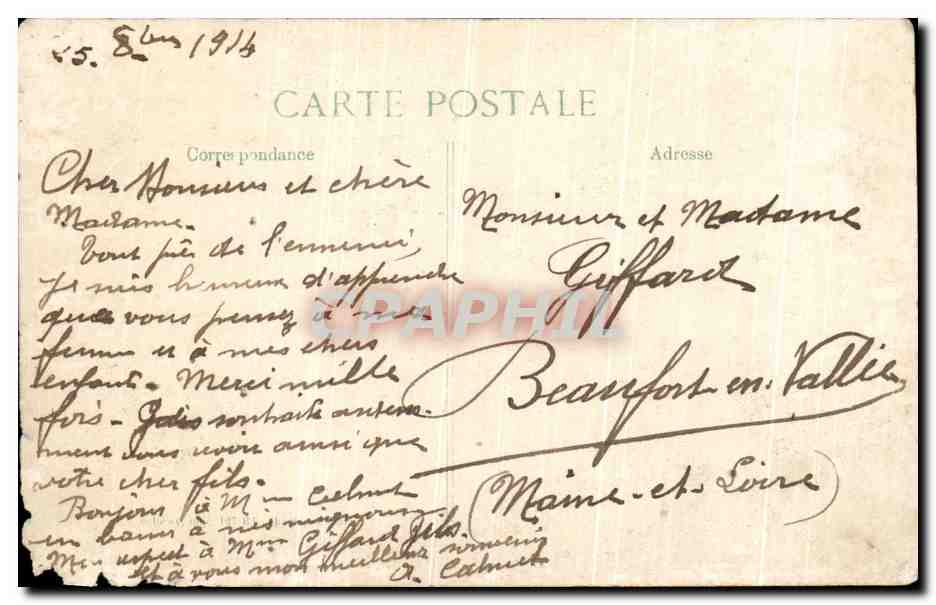 25. 8bre 1914
CARTE POSTALE
Correspondance
Adresse
Cher Monsieur et chère
Madame.
Tout près de l'ennemi,
Je suis heureux d'apprendre
que vous pensez à ma
femme et à mes chers
enfants. Merci mille
fois. souhaite
vous revoir ainsi que
votre cher fils.
Bonjour à Mme Calmet
un baiser à mes mignons.
Mon respect à Mme Giffard fils
et à vous mon meilleur souvenir
A. Calmet
Monsieur et Madame
Giffard
Beaufort-en-Vallée
(Maine-et-Loire)
CPAPHIL